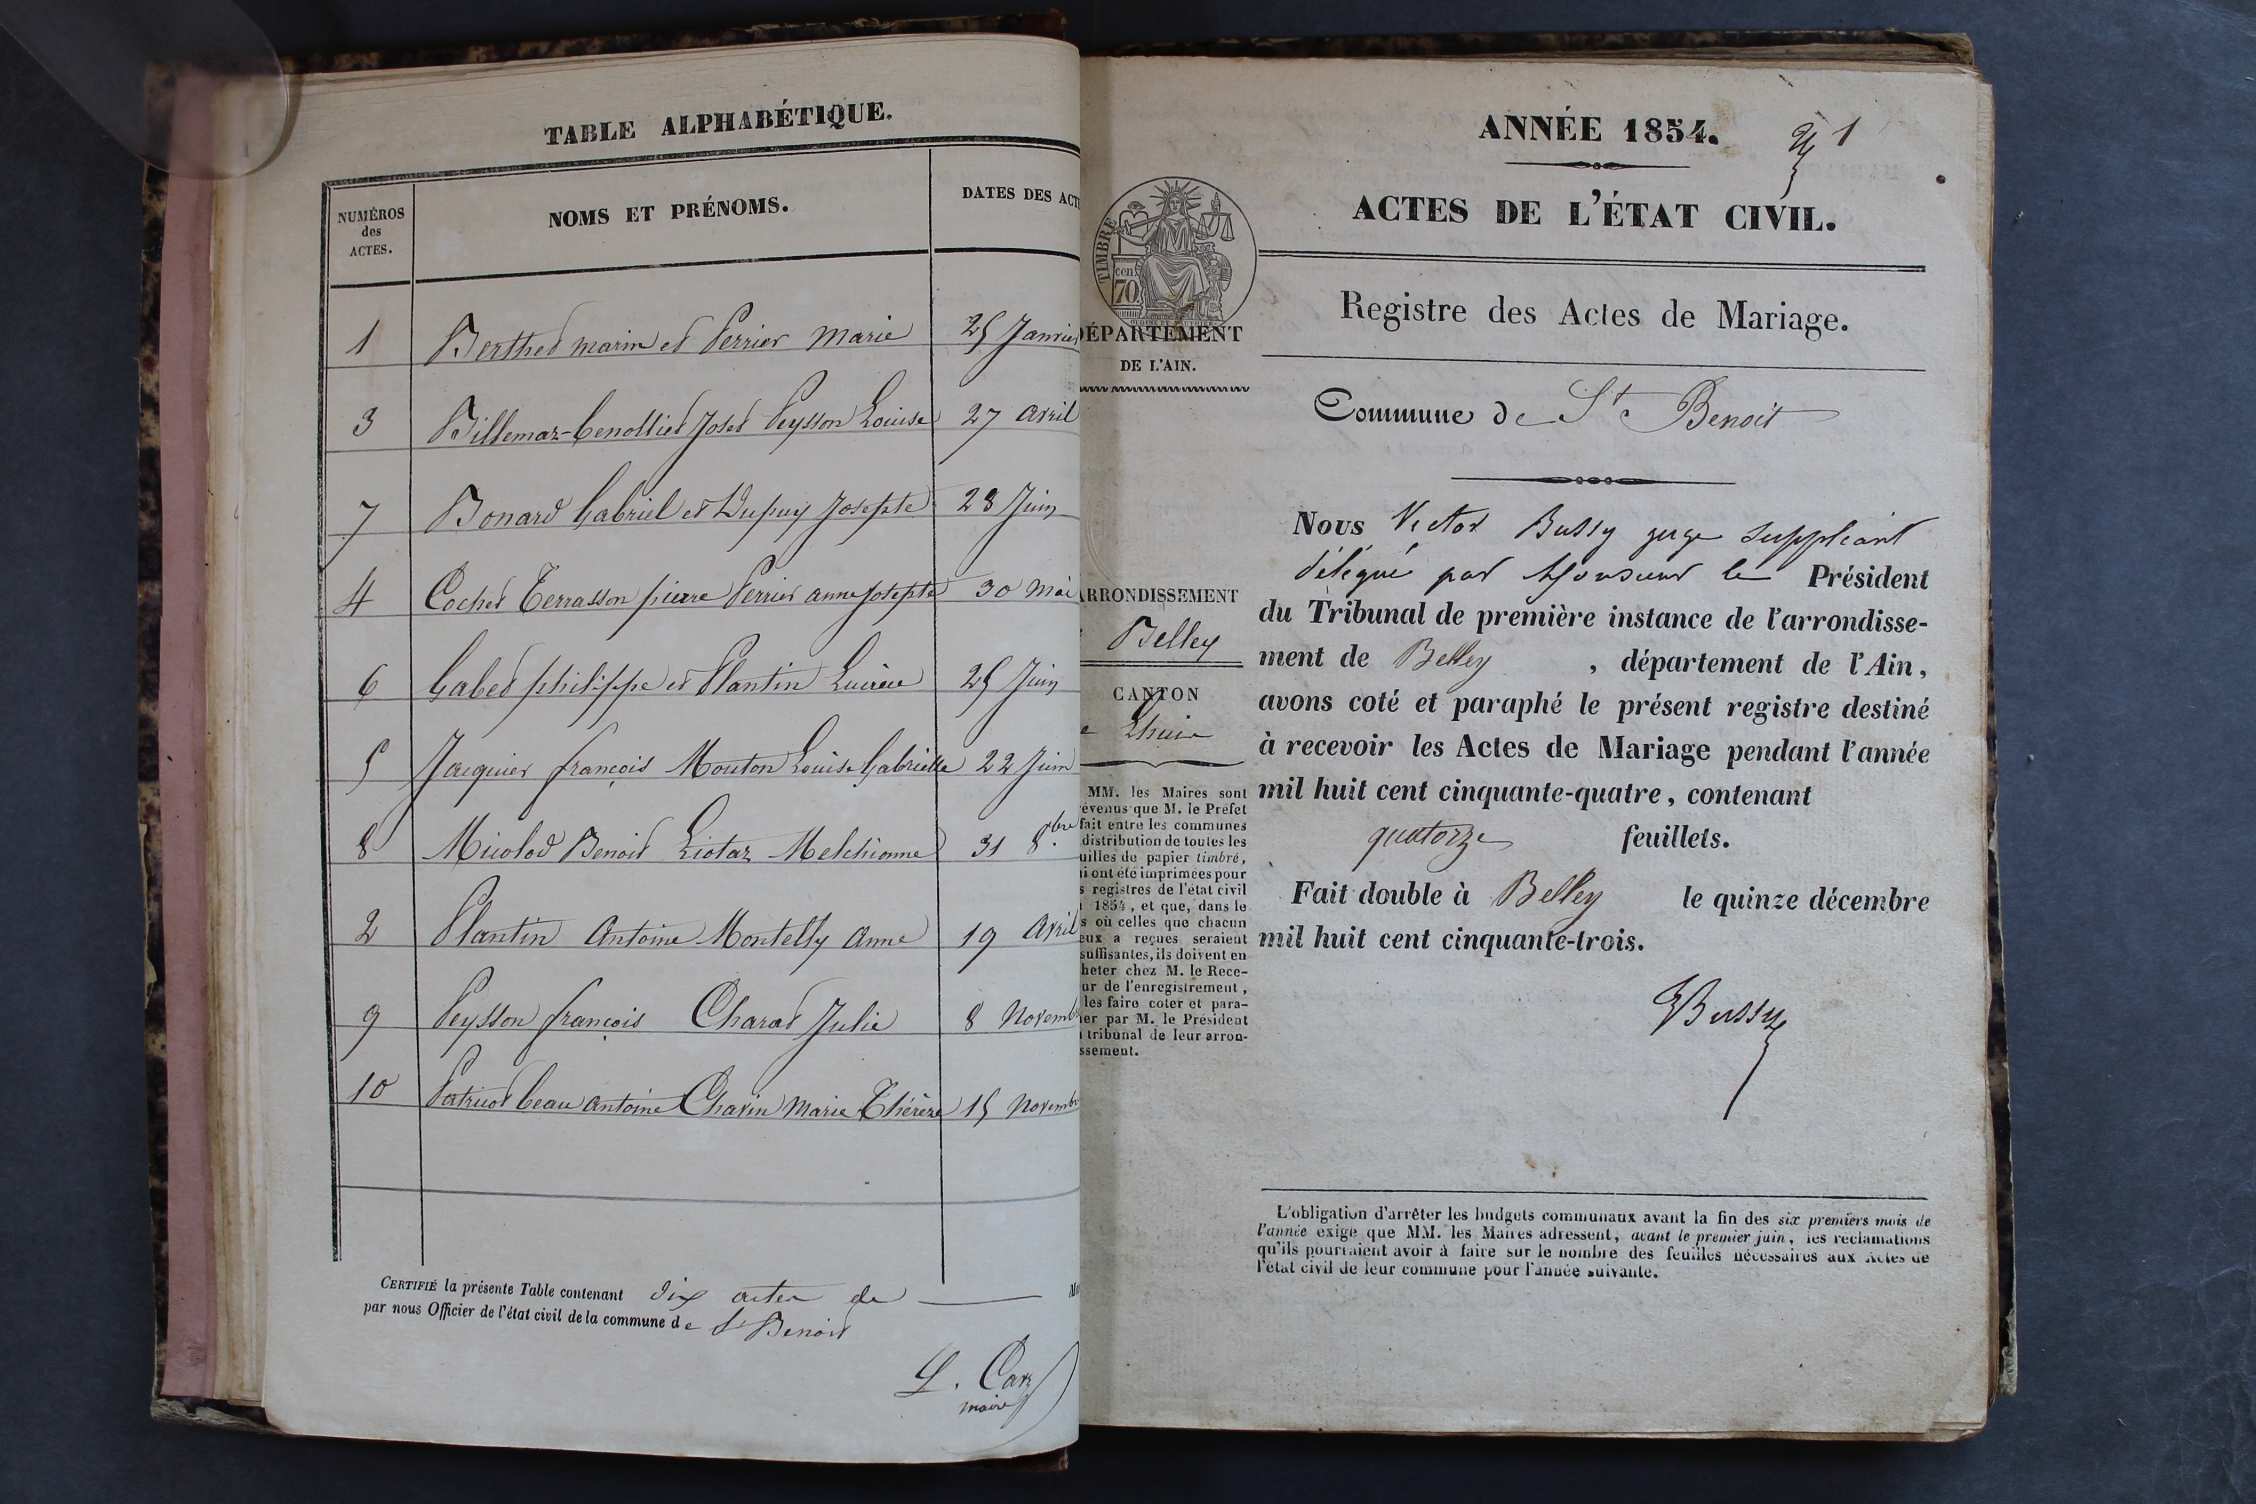 TABLE ALPHABÉTIQUE.
NUMÉROS
des
ACTES.
NOMS ET PRÉNOMS.
DATES DES ACT
1 Berthet marin et Perrier Marie 25 Janvier
3 Billemaz-Genolliet Josèt Peysson Louise 27 avril
7 Bonard Gabriel et Dupuy Josepte 28 Juin
4 Cochet Terrasson pierre Perrier anne Josepte 30 mai
6 Gabet philippe et Plantin 25 Juin
5 Jacquier françois Mouton Louise Gabrielle 22 Juin
8 Micolod Benoit Liotaz Melchionne 31 8.bre
2 Plantin Antoine Montelly Anne 19 Avril
9 Peysson françois Charat Julie 8 Novemb
10 Beau antoine Chavin Marie Thérèze 15 Novembr
CERTIFIÉ la présente Table contenant dix actes de
par nous Officier de l'état civil de la commune de St Benoit
maire
ANNÉE 1854. 1
ACTES DE L'ÉTAT CIVIL.
TIMBRE
cent
70
ÉPARTEMENT
DE L'AIN.
Registre des Actes de Mariage.
Commune de St Benoit
Nous Victor Bussy juge suppléant
délégué par Monsieur le Président
du Tribunal de première instance de l'arrondisse-
ment de Belley , département de l'Ain,
avons coté et paraphé le présent registre destiné
à recevoir les Actes de Mariage pendant l'année
mil huit cent cinquante-quatre, contenant
quatorze feuillets.
Fait double à Belley le quinze décembre
mil huit cent cinquante-trois.
VBussy
RRONDISSEMENT
Belley
CANTON
e Lhuis
MM. les Maires sont
évenus que M. le Préfet
fait entre les communes
distribution de toutes les
uilles de papier timbré,
i ont été imprimées pour
s registres de l'état civil
1854, et que, dans le
s où celles que chacun
eux a reçues seraient
suffisantes, ils doivent en
heter chez M. le Rece-
ur de l'enregistrement,
les faire coter et para-
er par M. le Président
tribunal de leur arron-
ssement.
L'obligation d'arrêter les budgets communaux avant la fin des six premiers mois de
l'année exige que MM. les Maires adressent, avant le premier juin, les réclamations
qu'ils pourraient avoir à faire sur le nombre des feuilles nécessaires aux Actes de
l'état civil de leur commune pour l'année suivante.